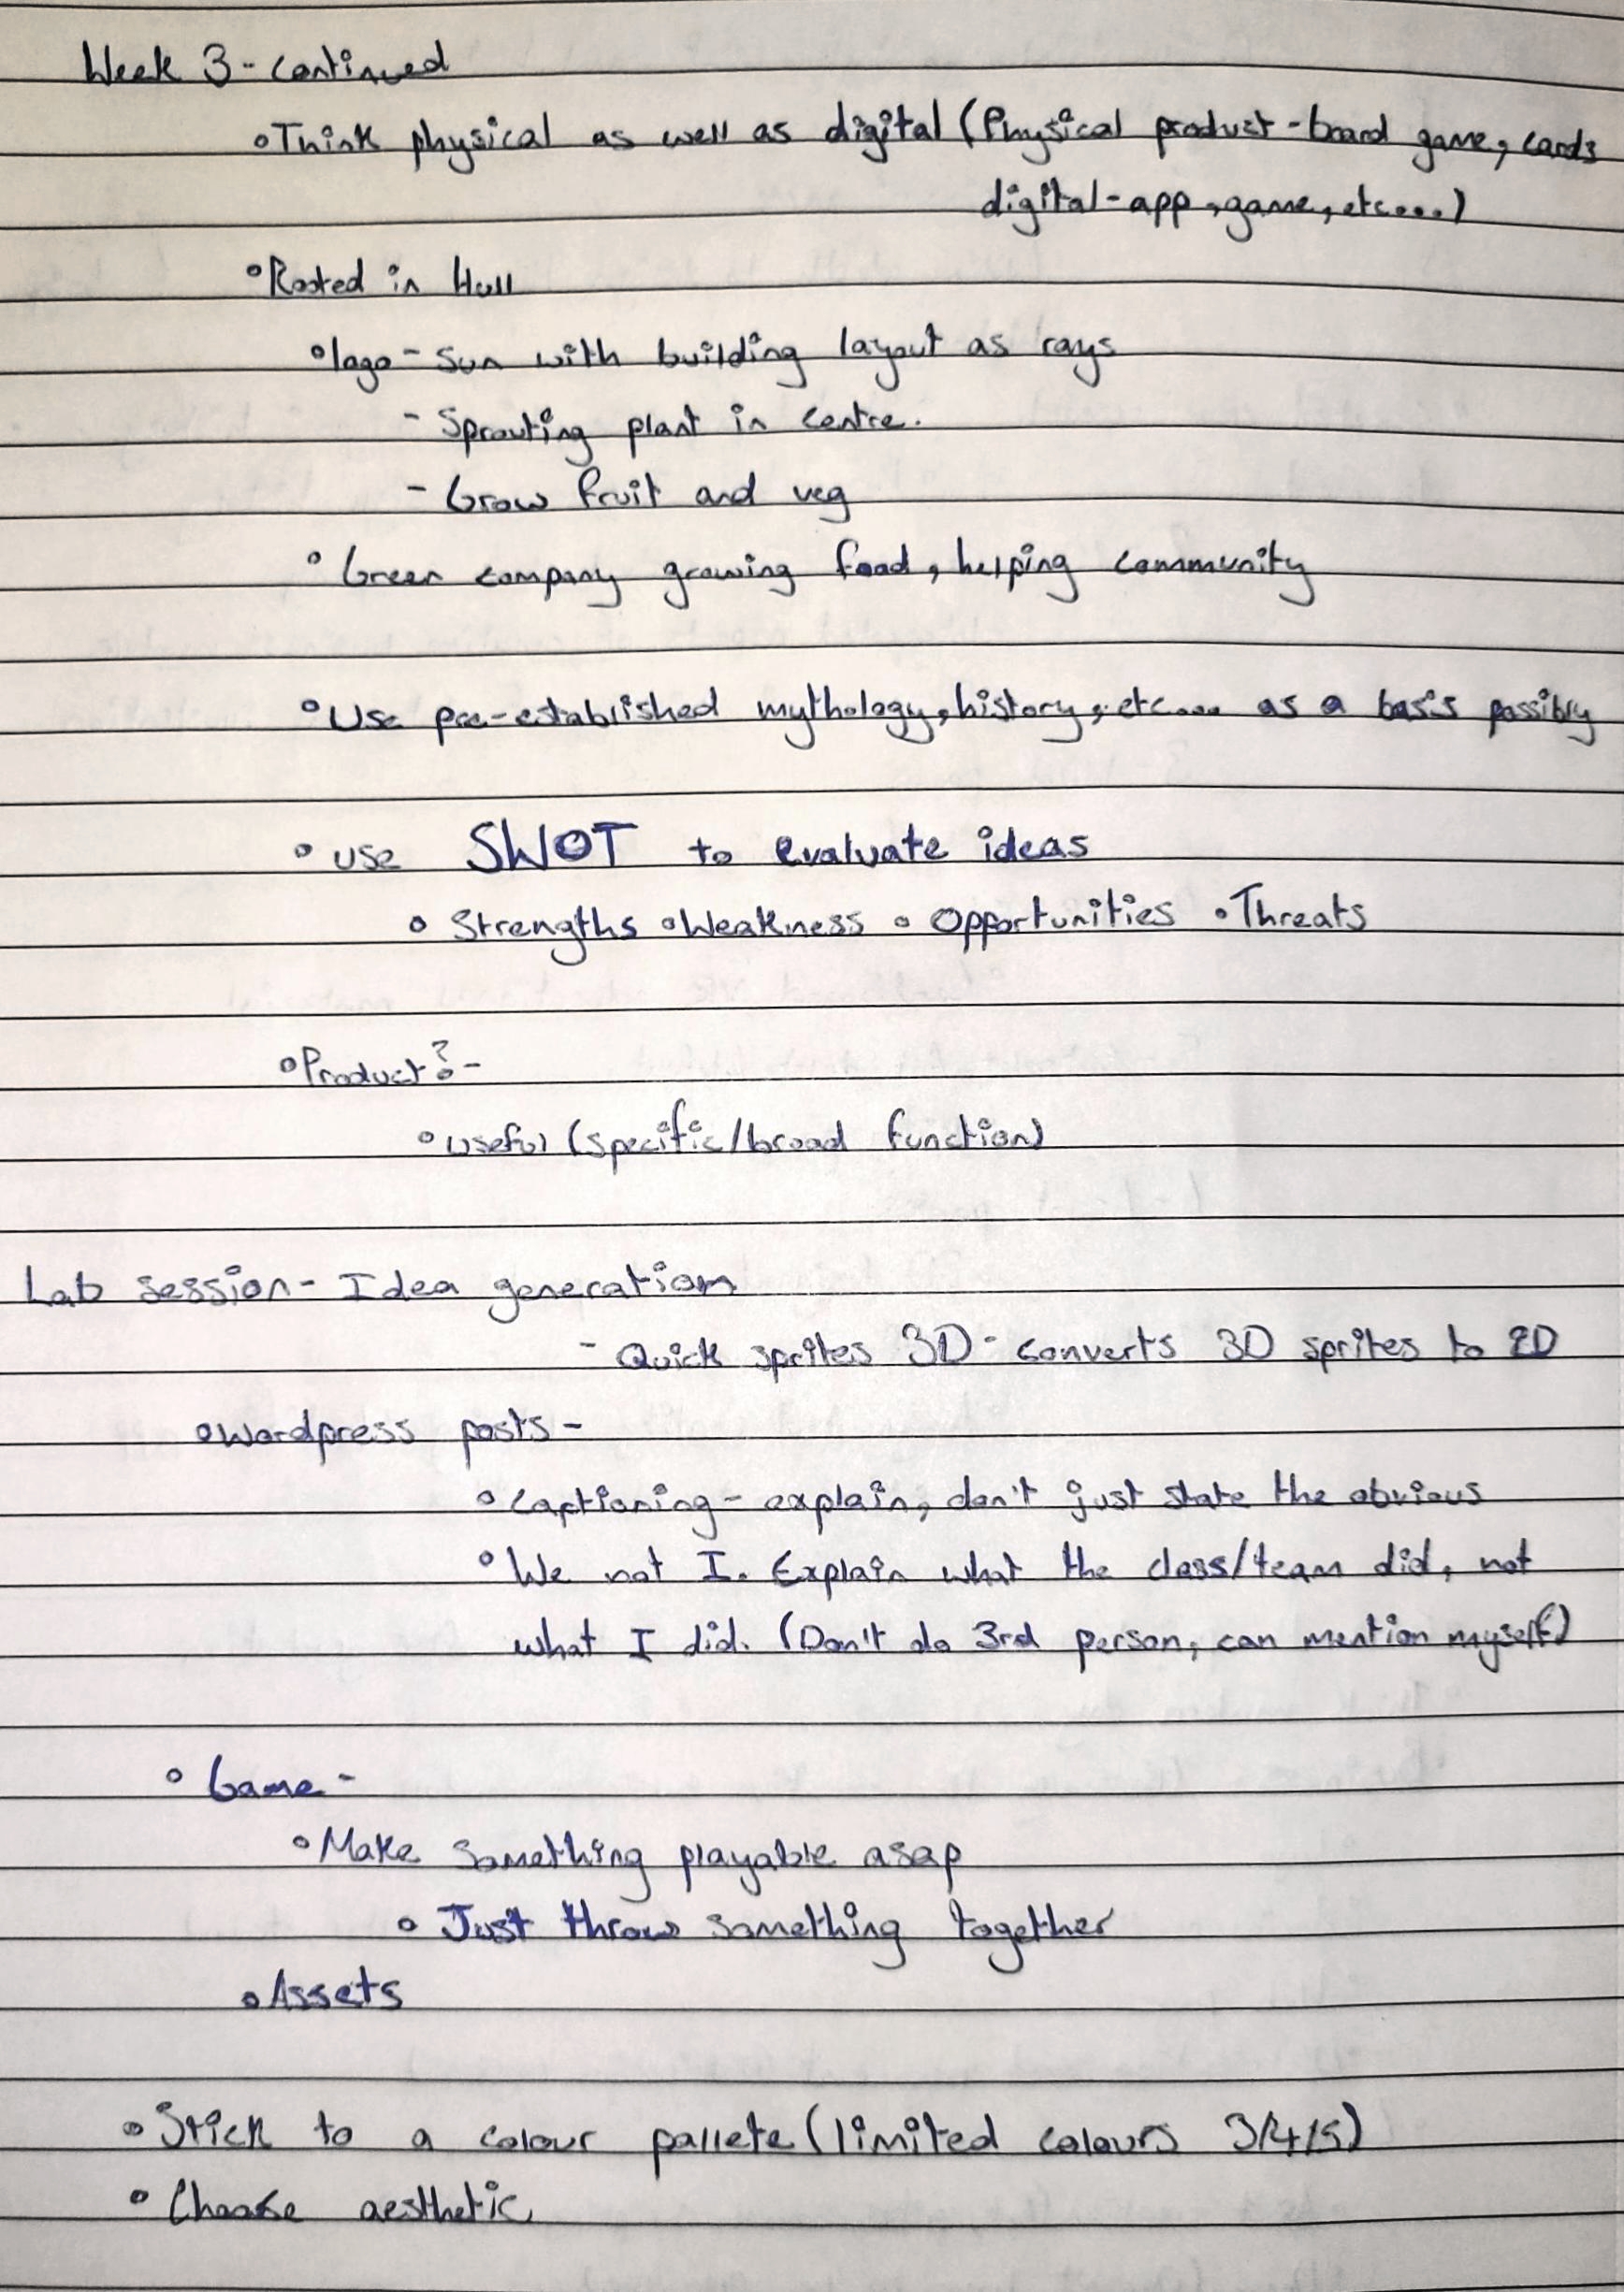 Week 3 - continued
•Think physical as well as digital (Physical product - board game, cards
digital - app, game, etc....)
•Rooted in Hull
•logo - Sun with building layout as rays
- Sprouting plant in centre.
- Grow fruit and veg
• Green company growing food, helping community
•Use pre-established mythology, history, etc.... as a basis possibly
• use SWOT to evaluate ideas
• Strengths •Weakness • Opportunities •Threats
•Product? -
•useful (specific/broad function)
Lab session - Idea generation
- Quick sprites 3D - converts 3D sprites to 2D
•Wordpress posts -
•captioning - explain, don't just state the obvious
•We not I. Explain what the class/team did, not
what I did. (Don't do 3rd person, can mention myself)
• Game -
•Make something playable asap
• Just throw something together
•Assets
•Stick to a colour pallete (limited colours 3/4/5)
• Choose aesthetic